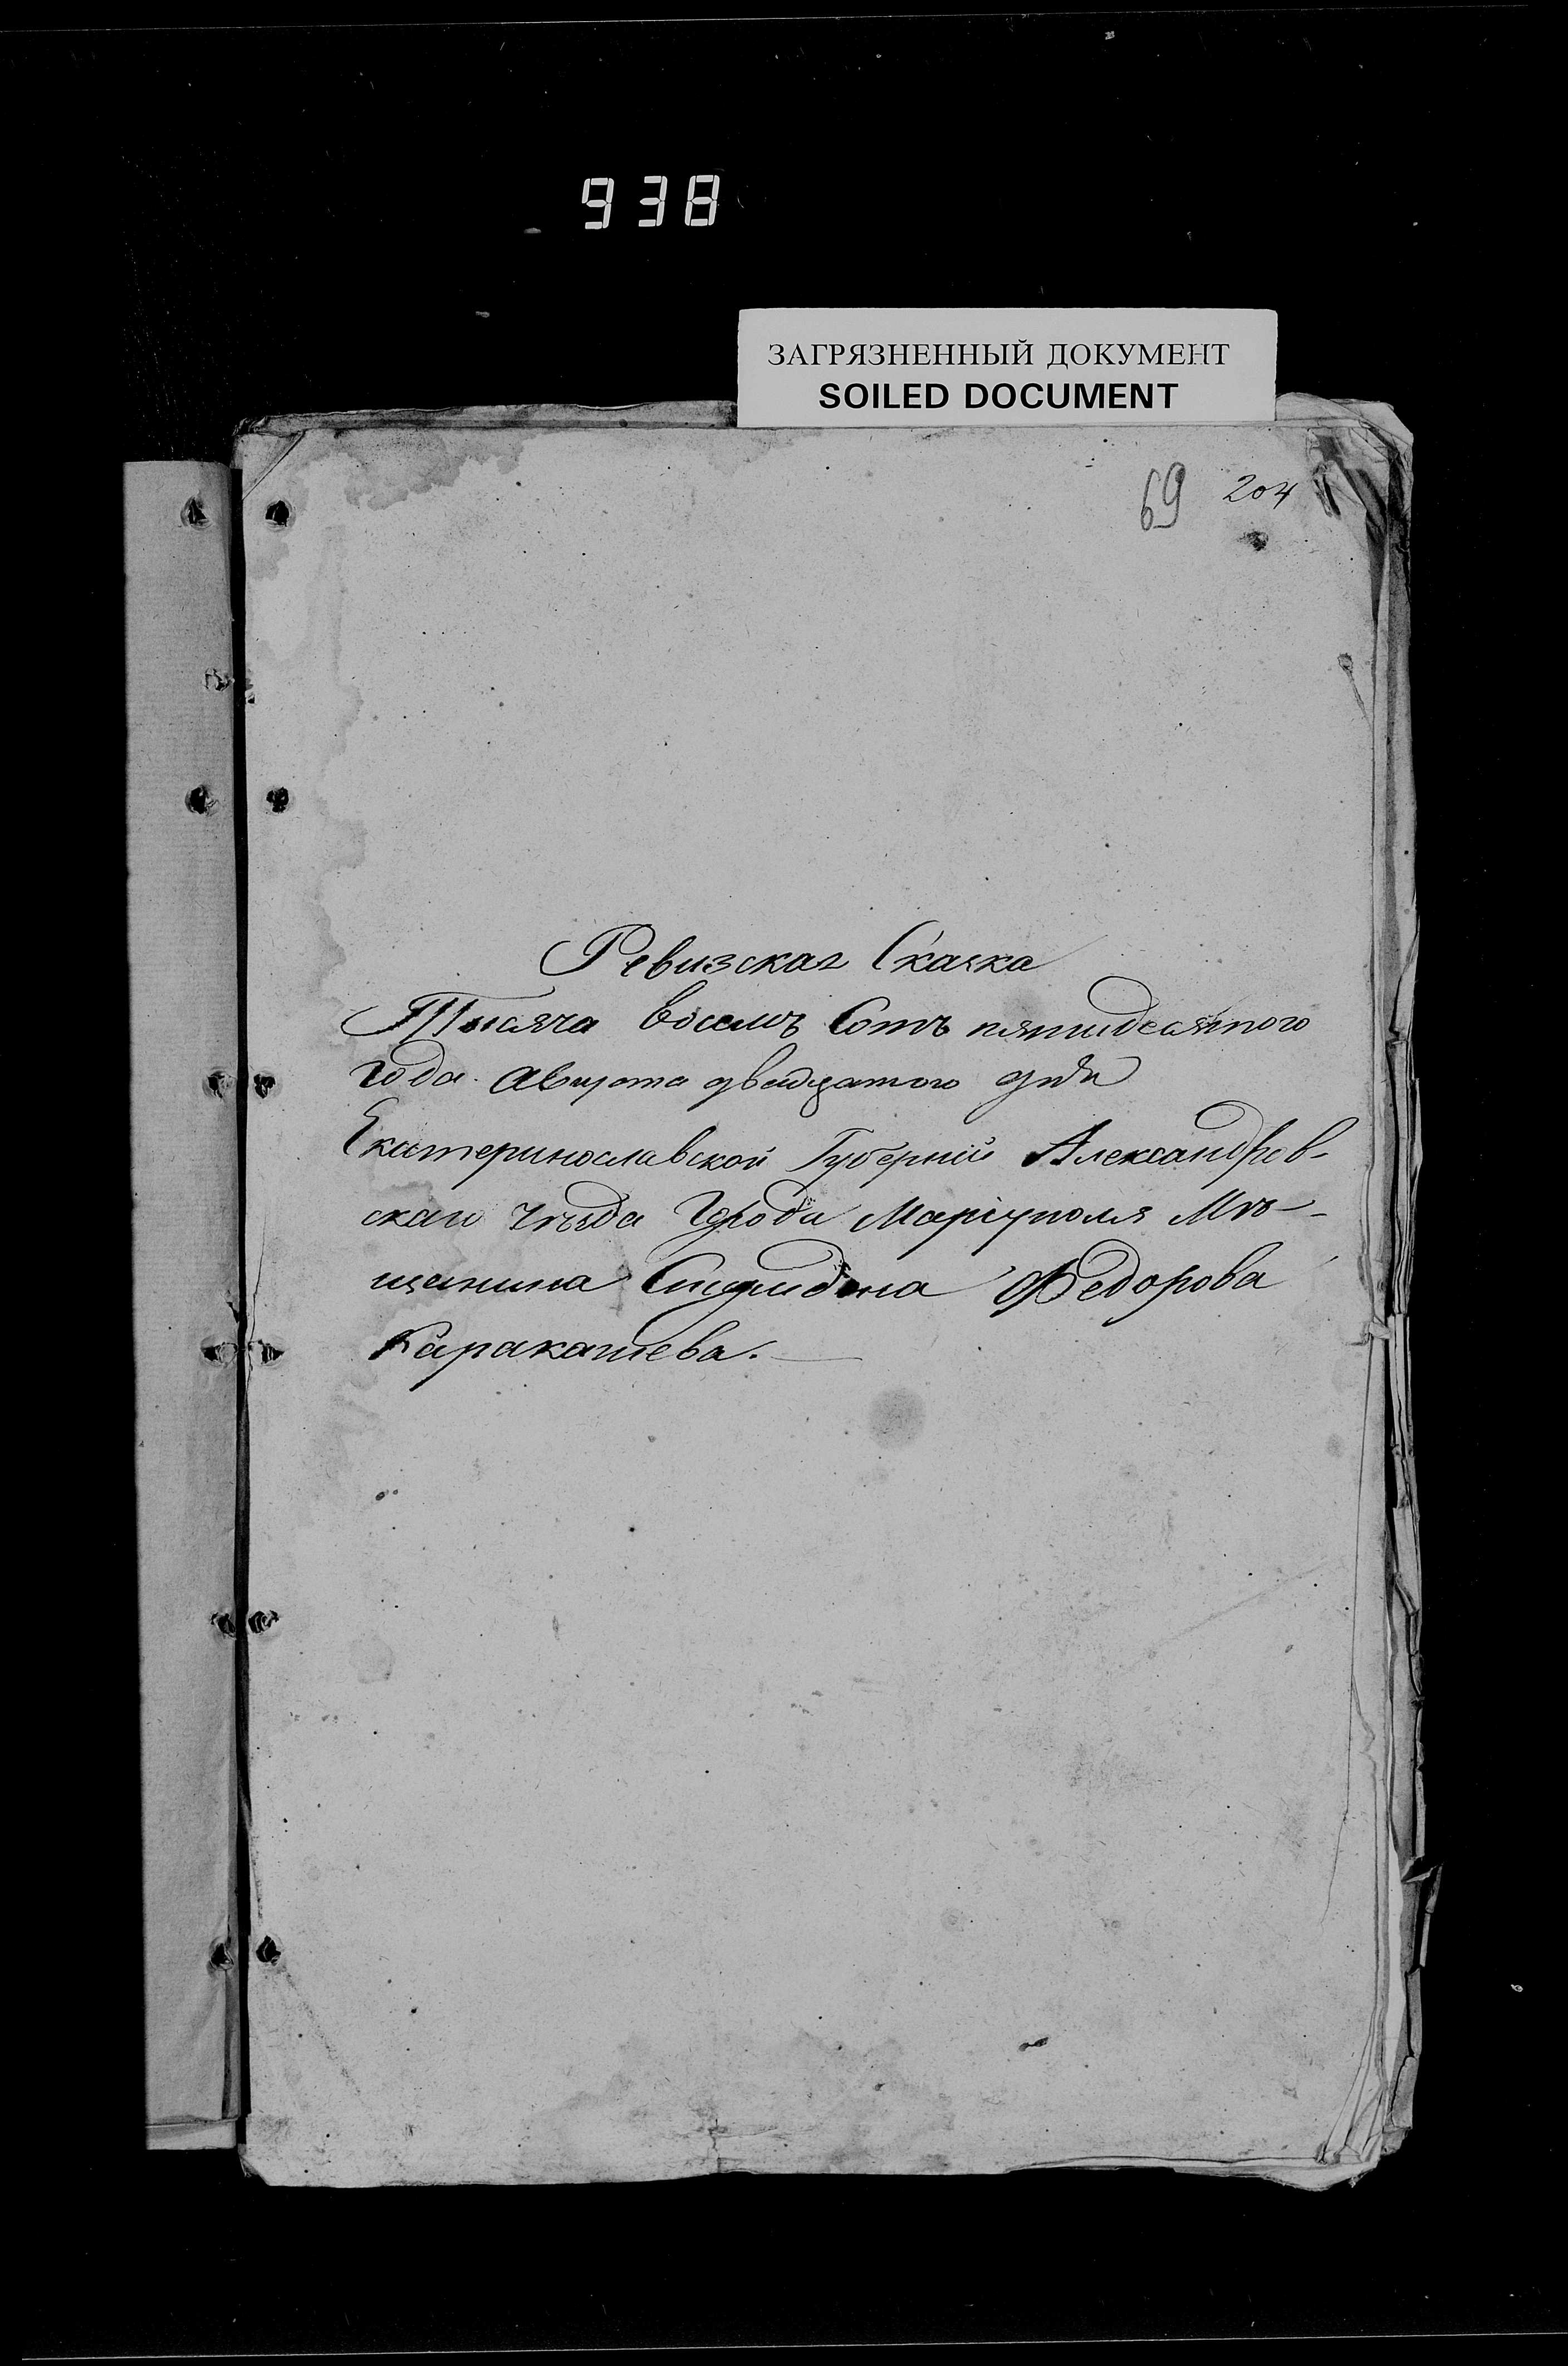 938
ЗАГРЯЗНЕННЫЙ ДОКУМЕНТ
SOILED DOCUMENT
69 204
Ревизская Сказка
Тысяча восемъ Сотъ пятидесятого
года Августа двадцатого дня
Екатеринославской Губерніи Александров-
скаго уѣзда города Маріуполя Мѣ-
щанина Спиридона Федорова
Каракашева.